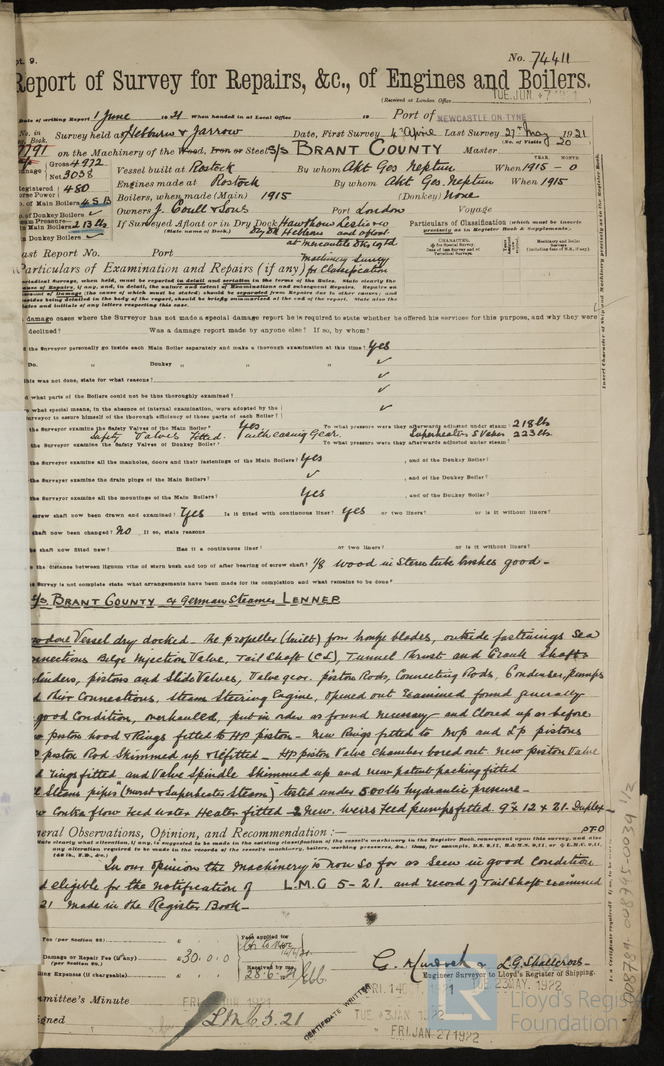 pt. 9.
No. 74411
Report of Survey for Repairs, &c., of Engines and Boilers.
(Received at London Office
TUE. JUN. 7 1921
Date of writing Report 1 June 1921 When handed in at Local Office 19 Port of NEWCASTLE-ON-TYNE
No. in Book. Survey held at Hebburn & Jarrow Date, First Survey 4th April Last Survey 27th May 1921
(No. of Visits 20)
7791 on the Machinery of the Wood, Iron or Steel S/S BRANT COUNTY Master
Gross 4972
Net 3038
Vessel built at Rostock By whom Akt Ges Neptun When 1915 - 0
YEAR. MONTH.
Registered Horse Power 480 Engines made at Rostock By whom Akt Ges. Neptun When 1915
No. of Main Boilers 4 S.B Boilers, when made (Main) 1915 (Donkey) None
No. of Donkey Boilers ✓ Owners J. Coull & Sons Port London Voyage
in Main Boilers 213 lbs If Surveyed Afloat or in Dry Dock Hawthorn Leslie & Co
(State name of Dock.) Dry Dk Hebburn and afloat
at Mercantile Dk Co Ltd
Donkey Boilers ✓
Particulars of Classification (which must be inserts precisely as in Register Book & Supplements).
Last Report No. Port
Machinery Survey
for Classification
Particulars of Examination and Repairs (if any)
damage cases where the Surveyor has not made a special damage report he is required to state whether he offered his services for this purpose, and why they were
declined? Was a damage report made by anyone else? If so, by whom?
the Surveyor personally go inside each Main Boiler separately and make a thorough examination at this time? Yes
Do. " Donkey " " " ✓
this was not done, state for what reasons? ✓
what parts of the Boilers could not be thus thoroughly examined? ✓
what special means, in the absence of internal examination, were adopted by the Surveyor to assure himself of the thorough efficiency of those parts of each Boiler? ✓
the Surveyor examine the Safety Valves of the Main Boiler? Yes. To what pressure were they afterwards adjusted under steam? 218 lbs
Safety Valves fitted with easing Gear. Superheaters S Valves 223 lbs
the Surveyor examine the Safety Valves of Donkey Boiler? To what pressure were they afterwards adjusted under steam?
the Surveyor examine all the manholes, doors and their fastenings of the Main Boilers? Yes , and of the Donkey Boiler?
the Surveyor examine the drain plugs of the Main Boilers? ✓ , and of the Donkey Boiler?
the Surveyor examine all the mountings of the Main Boilers? Yes , and of the Donkey Boiler?
screw shaft now been drawn and examined? Yes Is it fitted with continuous liner? Yes or two liners? or is it without liners?
shaft now been changed? No If so, state reasons
the shaft now fitted new? Has it a continuous liner? or two liners? or is it without liners?
the distance between lignum vitæ of stern bush and top of after bearing of screw shaft? 1/8 wood in Stern tube bushes good -
Survey is not complete state what arrangements have been made for its completion and what remains to be done?
S/S BRANT COUNTY ex German Steamer LENNEP
Vessel dry docked - the propeller (built) four bronze blades, outside fastenings Sea
connections Bilge Injection Valve, Tail Shaft (C.L), Tunnel Thrust and Crank Shafts
cylinders, pistons and Slide Valves, Valve gear, piston Rods, Connecting Rods, Condenser, pumps
and their Connections, Steam Steering Engine, Opened out Examined found generally
good Condition, overhauled, put in order as found necessary and Closed up as before
piston hood & Rings fitted to HP piston - New Rings fitted to MP and LP pistons
piston Rod Skimmed up & refitted - HP piston Valve Chamber bored out new piston Valve
rings fitted and Valve Spindle Skimmed up and new patent packing fitted
Steam pipes (main & Superheater Steam) tested under 500 lbs hydraulic pressure -
Contra flow Feed water Heater fitted - 2 New. Weirs Feed pumps fitted. 9 x 12 x 21. Duplex
P.T.O
General Observations, Opinion, and Recommendation :—
In our opinion the machinery is now so far as seen in good Condition
eligible for the notification of L.M.C 5-21. and record of Tail Shaft examined
21 made in the Register Book -
Fee (per Section 28) £
Damage or Repair Fee (if any) £30. 0. 0
(per Section 28.)
Travelling Expenses (if chargeable). £
Fees applied for
Received by me,
28.6.21
G. Murdoch & L.G. Shallcross
Engineer Surveyor to Lloyd's Register of Shipping.
Committee's Minute
TUE. 23 MAY. 1922
TUE 3 JAN. 1922
FRI. JAN 27 1922
L.M.C 5.21
CERTIFICATE WRITTEN
Lloyd's Register
Foundation
008784-008795-0039 1/2